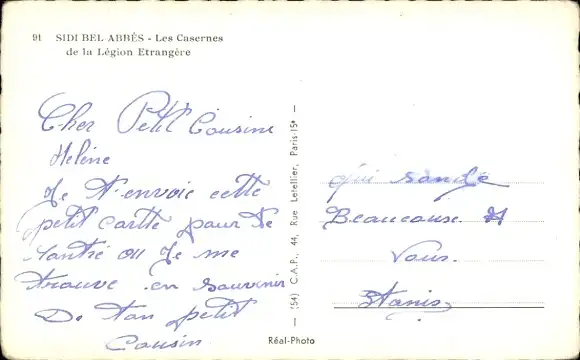 91 SIDI BEL ABBÈS - Les Casernes
de la Légion Etrangère
Cher Petit Cousine
Helène
Je t'envoie cette
petit cartte pour te
montré ou je me
trouve en souvenir
De ton petit
Cousin
(54) C.A.P., 44, Rue Letellier, Paris-15e
Réal-Photo
qui
Beaucouse
Vous.
Stanis